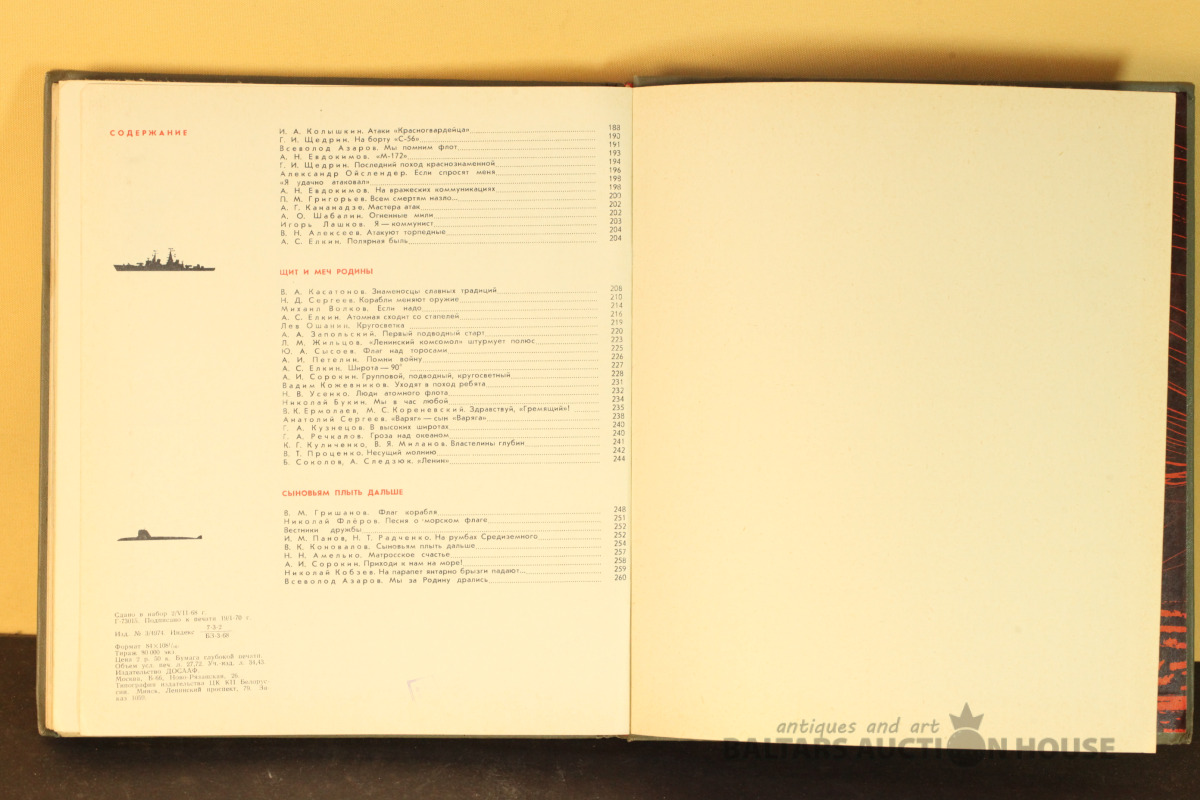 СОДЕРЖАНИЕ
И. А. Колышкин. Атаки «Красногвардейца» 188
Г. И. Щедрин. На борту «С-56» 190
Всеволод Азаров. Мы помним флот 191
А. Н. Евдокимов. «М-172» 193
Г. И. Щедрин. Последний поход краснознаменной 194
Александр Ойслендер. Если спросят меня 196
«Я удачно атаковал» 198
А. Н. Евдокимов. На вражеских коммуникациях 198
П. М. Григорьев. Всем смертям назло... 200
А. Г. Кананадзе. Мастера атак 202
А. О. Шабалин. Огненные мили 202
Игорь Лашков. Я — коммунист 203
В. Н. Алексеев. Атакуют торпедные 204
А. С. Елкин. Полярная быль 204
ЩИТ И МЕЧ РОДИНЫ
В. А. Касатонов. Знаменосцы славных традиций 208
Н. Д. Сергеев. Корабли меняют оружие 210
Михаил Волков. Если надо 214
А. С. Елкин. Атомная сходит со стапелей 216
Лев Ошанин. Кругосветка 219
А. А. Запольский. Первый подводный старт 220
Л. М. Жильцов. «Ленинский комсомол» штурмует полюс 223
Ю. А. Сысоев. Флаг над торосами 225
А. И. Петелин. Помни войну 226
А. С. Елкин. Широта — 90° 227
А. И. Сорокин. Групповой, подводный, кругосветный 228
Вадим Кожевников. Уходят в поход ребята 231
Н. В. Усенко. Люди атомного флота 232
Николай Букин. Мы в час любой 234
В. К. Ермолаев, М. С. Кореневский. Здравствуй, «Гремящий»! 235
Анатолий Сергеев. «Варяг» — сын «Варяга» 238
Г. А. Кузнецов. В высоких широтах 240
Г. А. Речкалов. Гроза над океаном 240
К. Г. Куличенко, В. Я. Миланов. Властелины глубин 241
В. Т. Проценко. Несущий молнию 242
Б. Соколов, А. Следзюк. «Ленин» 244
СЫНОВЬЯМ ПЛЫТЬ ДАЛЬШЕ
В. М. Гришанов. Флаг корабля 248
Николай Флёров. Песня о морском флаге 251
Вестники дружбы 252
И. М. Панов, Н. Т. Радченко. На румбах Средиземного 252
В. К. Коновалов. Сыновьям плыть дальше 254
Н. Н. Амелько. Матросское счастье 257
А. И. Сорокин. Приходи к нам на море! 258
Николай Кобзев. На парапет янтарно брызги падают... 259
Всеволод Азаров. Мы за Родину дрались 260
Сдано в набор 2/VII-68 г.
Г-75015. Подписано к печати 19/I-70 г.
Изд. № 3/4074. Индекс 7-3-2
БЗ-3-68
Формат 84×108
Тираж 80.000 экз.
Цена 2 р. 50 к. Бумага глубокой печати.
Объем усл. печ. л. 27,72. Уч.-изд. л.
Издательство ДОСААФ.
Москва, Б-66, Ново-Рязанская, 26.
Типография издательства ЦК КП Белорус-
сии. Минск, Ленинский проспект, 79. За-
каз
antiques and art
BALTARS AUCTION HOUSE